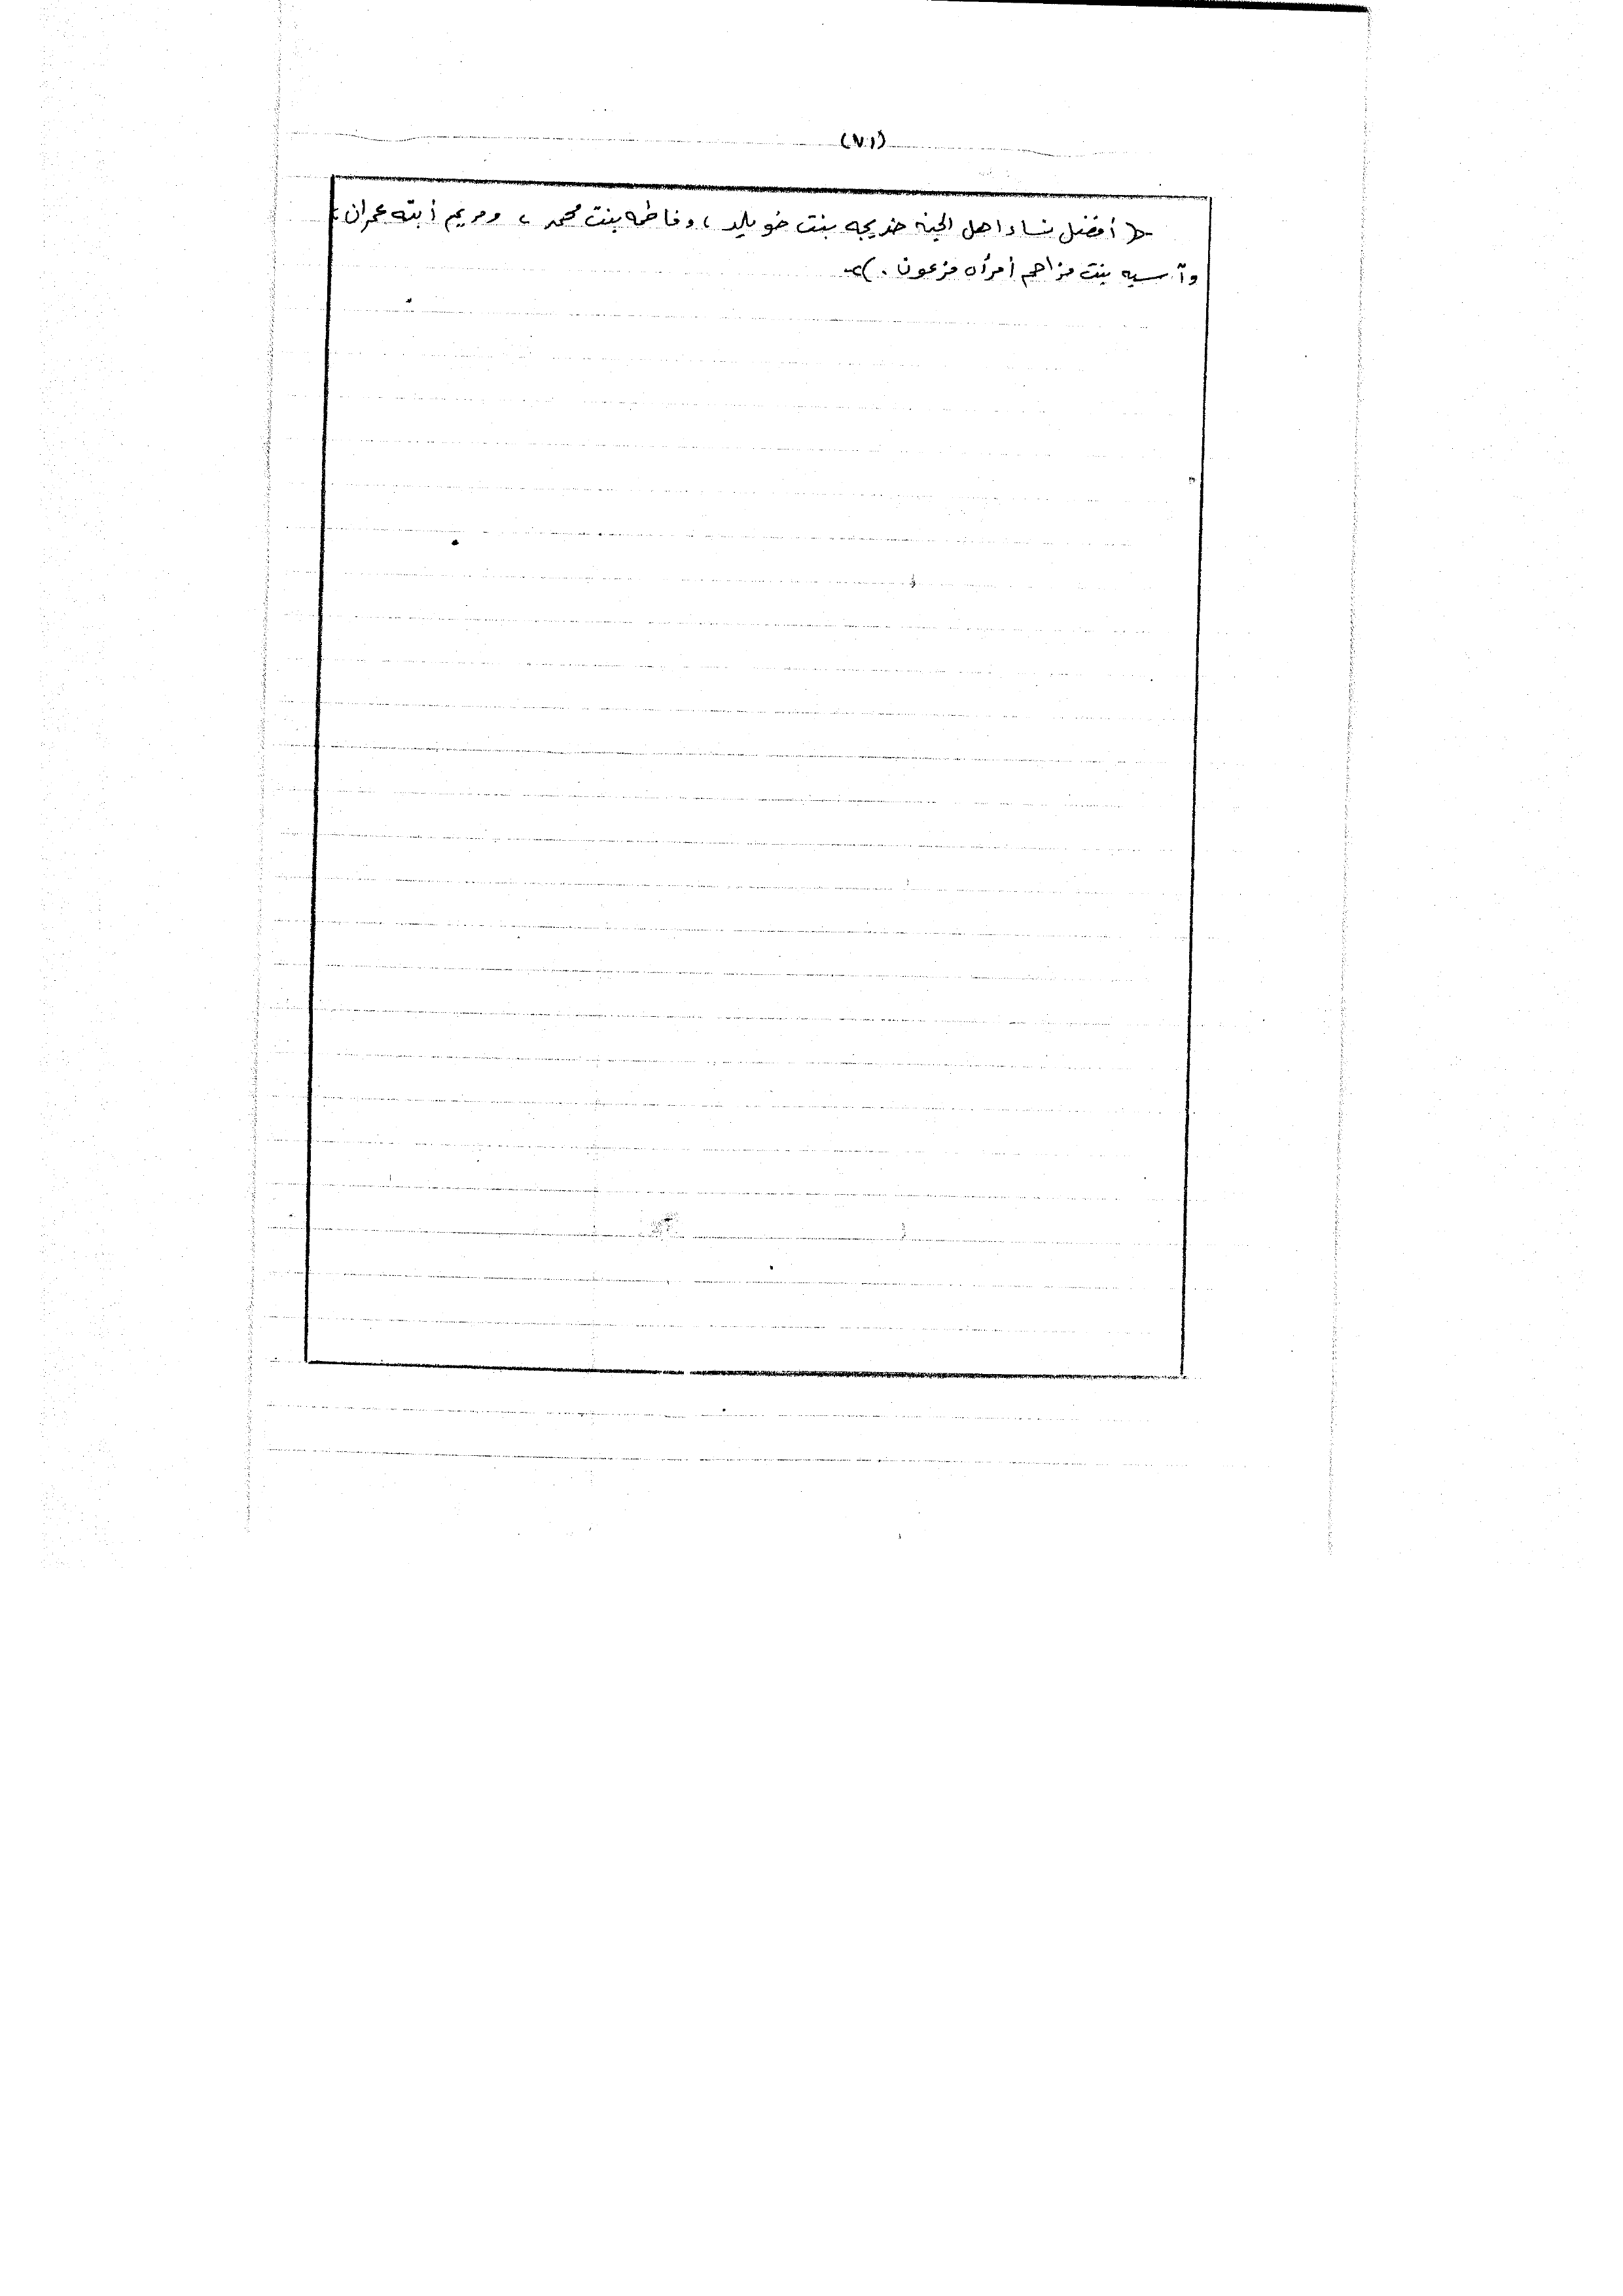 (٧٠١)
(( أفضل نساء اهل الجنه خديجه بنت خويلد ، وفاطمه بنت محمد ، ومريم أبنه عمران ،
وآسيه بنت مزاحم أمرأه فرعون . ))